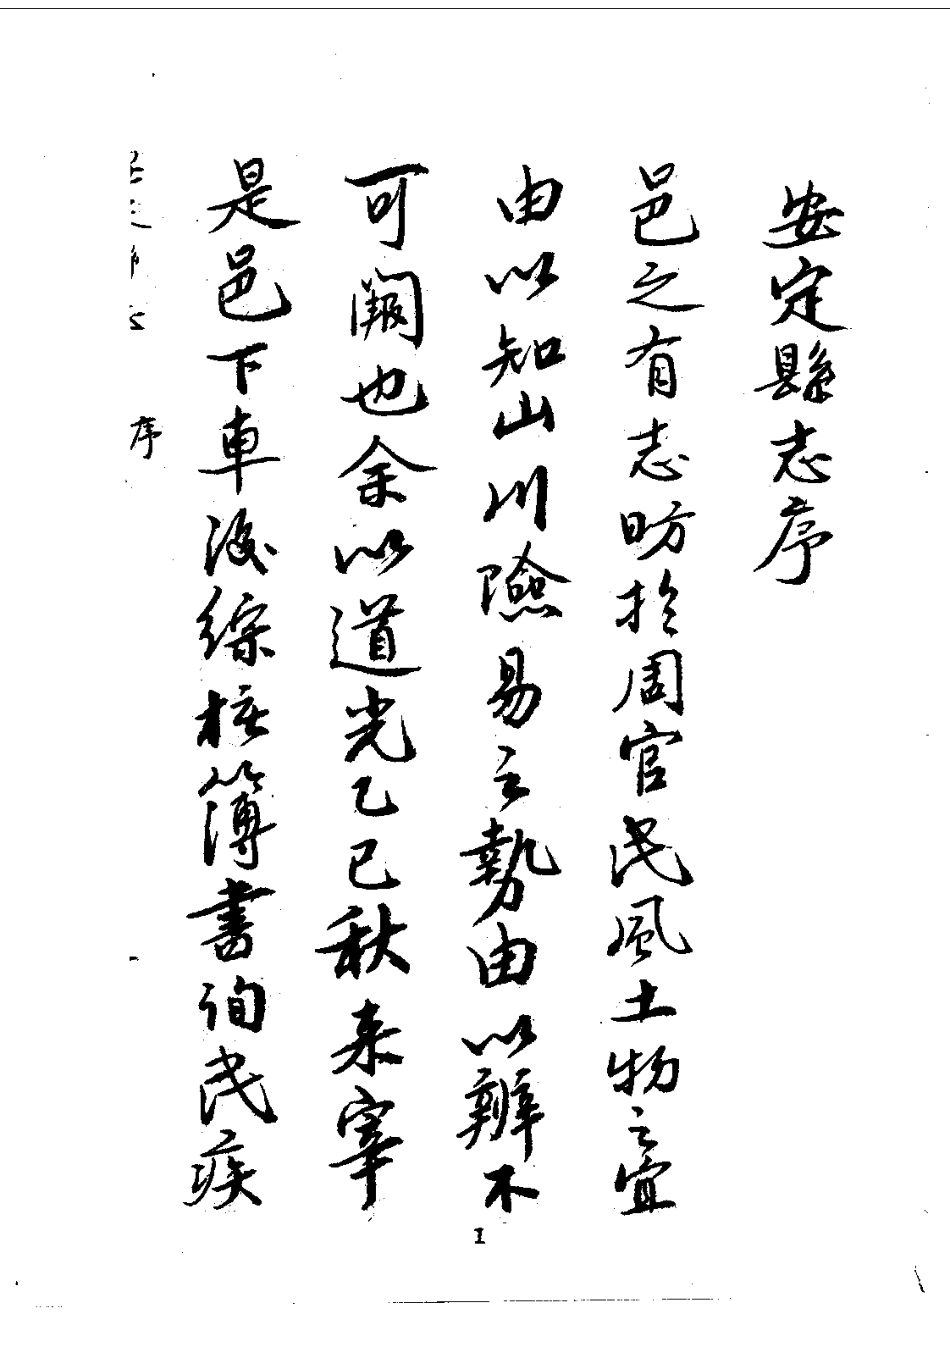 安定縣志序
邑之有志昉於周官民風土物之宜
由以知山川險易之勢由以辨不
可闕也余以道光乙巳秋来宰
是邑下車後綜核簿書詢民疾
序
1